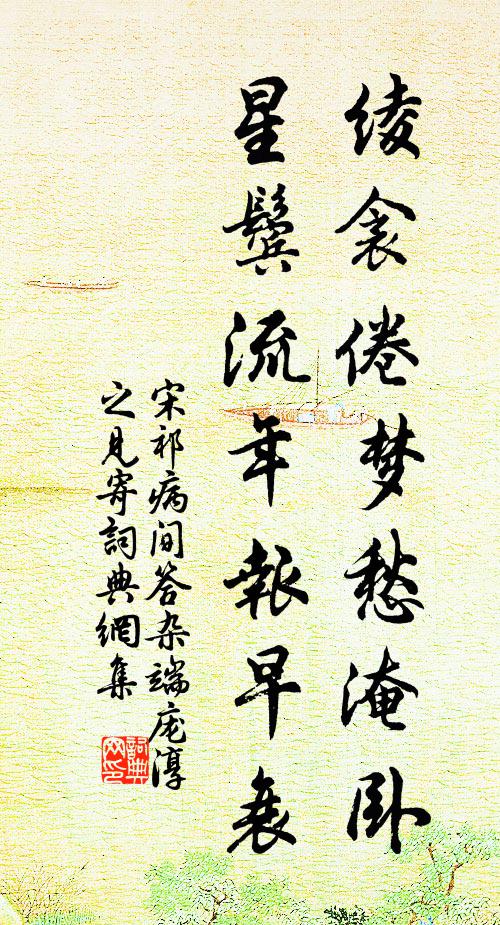 绫衾倦梦愁淹卧
星鬓流年報早衰
宋祁病间答杂端庞淳
之见寄詞典網集
詞典